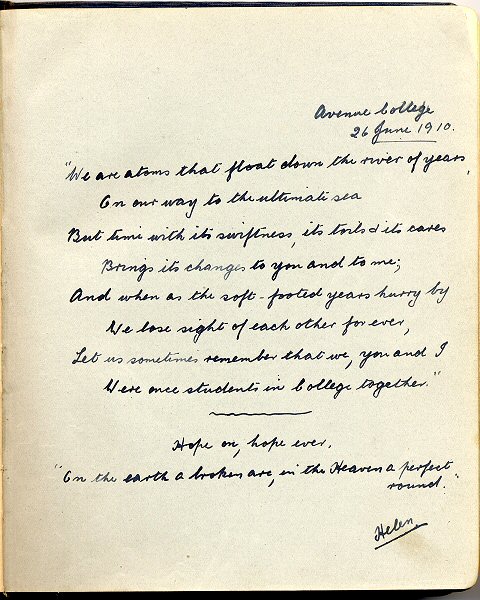 Avenue College
26 June 1910.
"We are atoms that float down the river of years,
On our way to the ultimate sea
But time with its swiftness, its toils & its cares
Brings its changes to you and to me;
And when as the soft-footed years hurry by
We lose sight of each other for ever,
Let us sometimes remember that we, you and I
Were once students in College together."
Hope on, hope ever.
"On the earth a broken arc, in the Heaven a perfect
round."
Helen